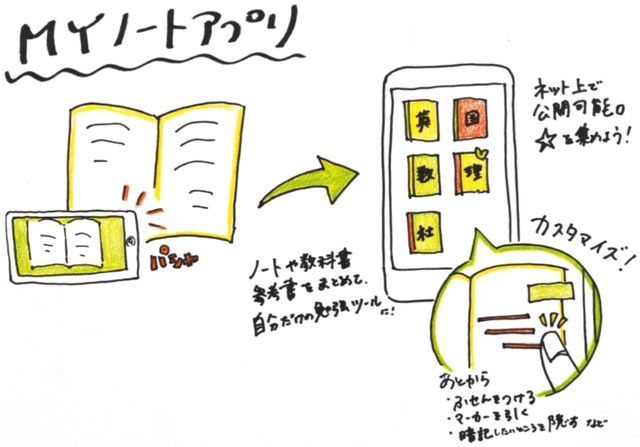 MYノートアプリ
パシャ
ノートや教科書
参考書をまとめて、
自分だけの勉強ツールに!
英
国
数
理
社
ネット上で
公開可能。
☆を集めよう!
カスタマイズ!
あとから
・ふせんをつける
・マーカーを引く
・暗記したいところを隠す など